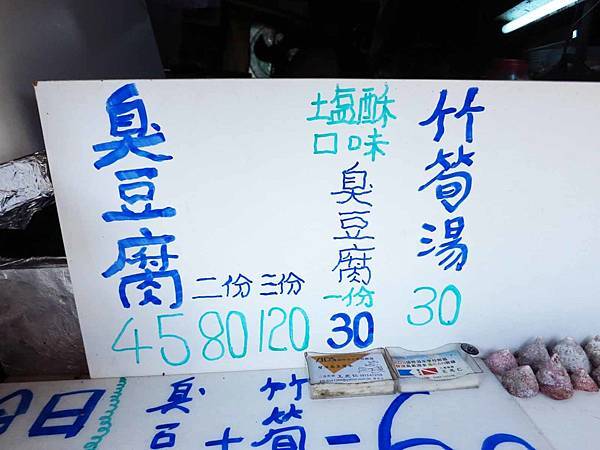 臭豆腐
二份 三份
45 80 120
塩酥
口味
臭豆腐
一份
30
竹筍湯
30
今日
臭豆
+
竹筍
-
6